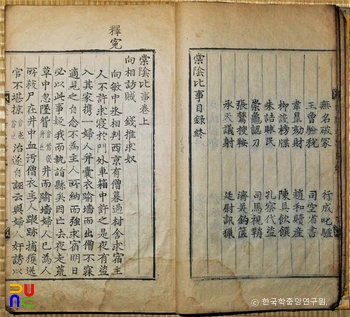 無名破冢 行成叱驢
王曾驗稅 司空省書
韋臯劾財 趙和贖產
柳設榜牒 陳具飲饌
朱詰賊民 孔察代盜
崇龜認刀 司馬視鞘
張鷟搜鞍 濟美鉤篋
承天議射 廷尉訊獵
棠陰比事目錄終
釋冤
棠陰比事卷上
向相訪賊 錢推求奴
向敏中丞相判西京有僧暮過村舍求宿主
人不許求寢於門外車箱中許之是夜有盜
入其家携一婦人并囊衣踰墻而出僧不寐
適見之自念不為主人所納而強求宿明日
必以此事疑我而執詣縣矣因亡去夜走荒
草中忽墜眢井而踰墻婦人已為人
所殺尸在井中血汚僧衣主人蹤跡捕獲送
官不堪掠治遂自誣云與婦人奸誘以
RUN
ⓒ 한국학중앙연구원